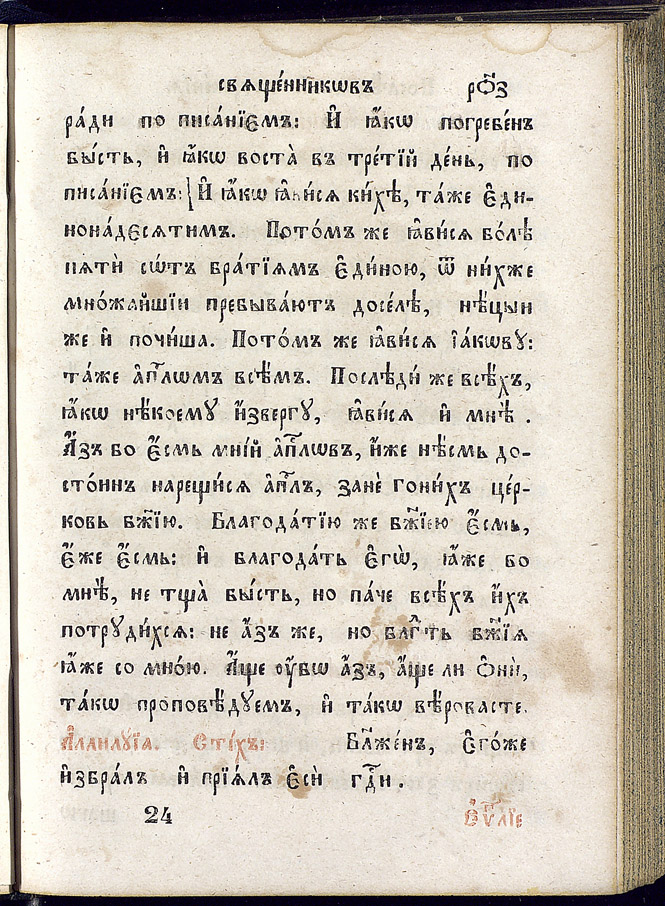 свѧще́нникѡвъ рѳ҃з
ра́ди по писа́нїємъ: И҆ ꙗ҆́кѡ погребе́нъ
бы́сть, и҆ ꙗ҆́кѡ воста̀ въ тре́тїй де́нь, по
писа́нїємъ: И҆ ꙗ҆́кѡ ꙗ҆ви́сѧ ки́фѣ, та́же є҆ди-
нона́десѧтимъ. Пото́мъ же ꙗ҆ви́сѧ бо́лѣ
пѧтѝ сѡ́тъ бра́тїѧмъ є҆ди́ною, ѿ ни́хже
мно́жайшїи пребыва́ютъ досе́лѣ, нѣ́цыи
же и҆ почи́ша. Пото́мъ же ꙗ҆ви́сѧ і҆а́кѡву:
та́же а҆пⷭ҇лѡмъ всѣ̑мъ. Послѣди́ же всѣ́хъ,
ꙗ҆́кѡ нѣ́коемꙋ и҆́звергꙋ, ꙗ҆ви́сѧ и҆ мнѣ̀.
А҆́зъ бо є҆́смь мні́й а҆пⷭ҇лѡвъ, и҆́же нѣ́смь до-
сто́инъ нарещи́сѧ а҆пⷭ҇лъ, занѐ гони́хъ це́р-
ковь бж҃їю. Благода́тїю же бж҃їею є҆́смь,
є҆́же є҆́смь: и҆ благода́ть є҆гѡ̀, ꙗ҆́же во
мнѣ̀, не тща̀ бы́сть, но па́че всѣ́хъ и҆́хъ
потрꙋди́хсѧ: не а҆́зъ же, но блгⷣть бж҃їѧ
ꙗ҆́же со мно́ю. А҆́ще ᲂу҆́бѡ а҆́зъ, а҆́ще ли ѻ҆нѝ,
та́кѡ проповѣ́дꙋемъ, и҆ та́кѡ вѣ́роваете.
А҆ллилꙋ́їа. Сті́хъ: Бл҃же́нъ, є҆го́же
и҆збра́лъ и҆ прїѧ́лъ є҆сѝ гдⷭ҇и.
24 є҆ѵⷢ҇лїе